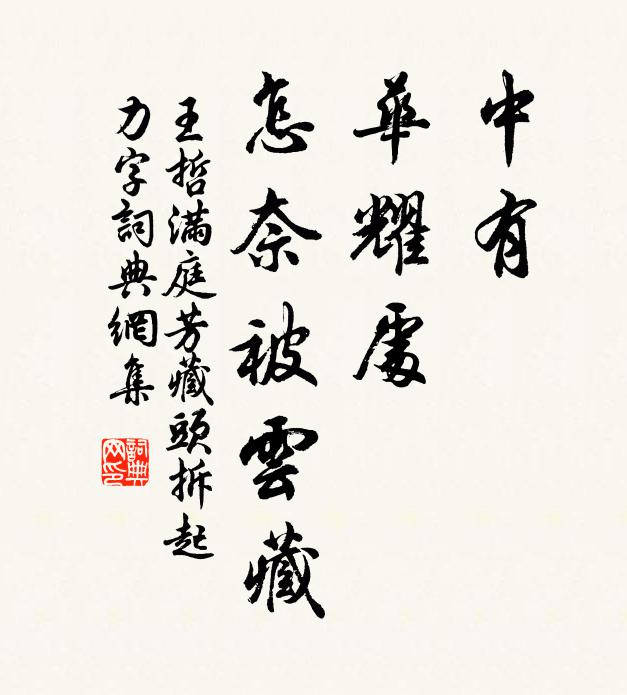 中有
華耀處
怎奈被雲藏
王哲滿庭芳藏頭拆起
力字詞典網集
詞典
网印